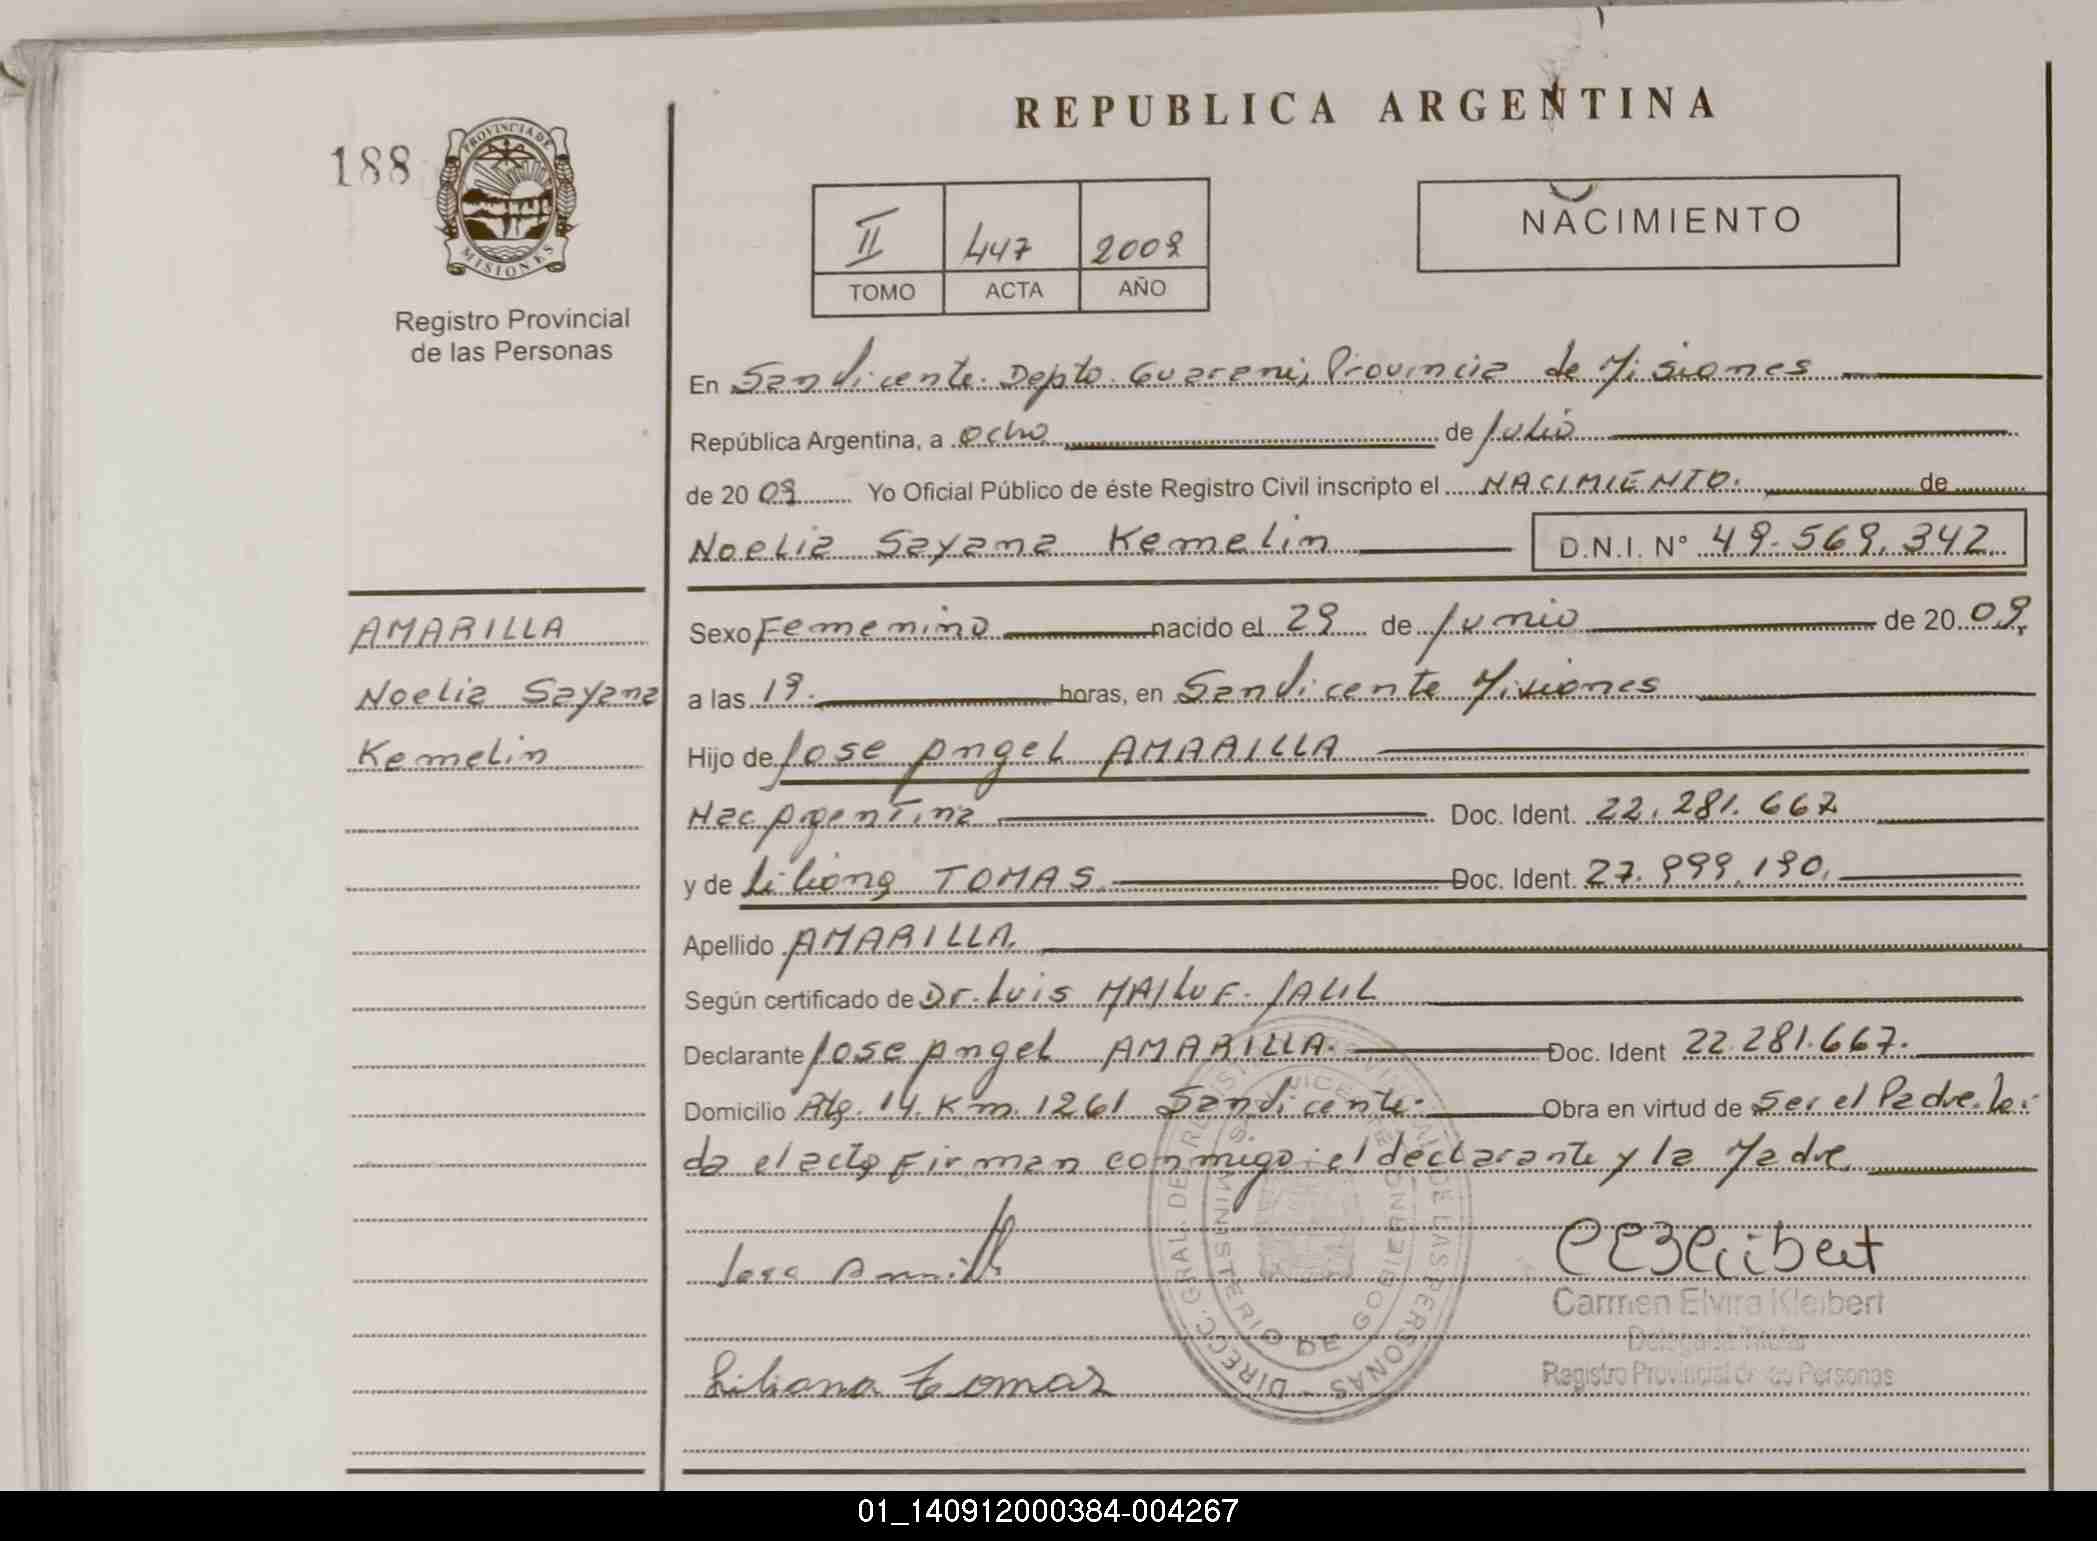 REPUBLICA ARGENTINA
188
PROVINCIA DE
MISIONES
Registro Provincial
de las Personas
II 447 2009
TOMO ACTA AÑO
NACIMIENTO
En San Vicente. Depto. Guarani, Provincia de Misiones
República Argentina, a ocho de Julio
de 20 09 Yo Oficial Público de éste Registro Civil inscripto el NACIMIENTO. de
Noelia Sayana Kemelin D.N.I. Nº 49.569.342
AMARILLA
Noelia Sayana
Kemelin
Sexo Femenino nacido el 29 de Junio de 20 09,
a las 19. horas, en San Vicente Misiones
Hijo de Jose Angel AMARILLA
Nac Argentina Doc. Ident. 22.281.667
y de Liliana TOMAS Doc. Ident. 27.999.190.
Apellido AMARILLA.
Según certificado de Dr. Luis MAILUF. JALIL
Declarante Jose Angel AMARILLA. Doc. Ident 22.281.667.
Domicilio 14. Km. 1261 San Vicente. Obra en virtud de Ser el Padre. Lei
da el acta Firman conmigo: el declarante y la Madre.
Jose
Liliana Tomas
Carmen Elvira Kleibert
Delegada Titular
Registro Provincial de las Personas
DIRECC. GRAL. DE REGISTRO PROVINCIAL DE LAS PERSONAS
MINISTERIO DE GOBIERNO
S. VICENTE
01_140912000384-004267